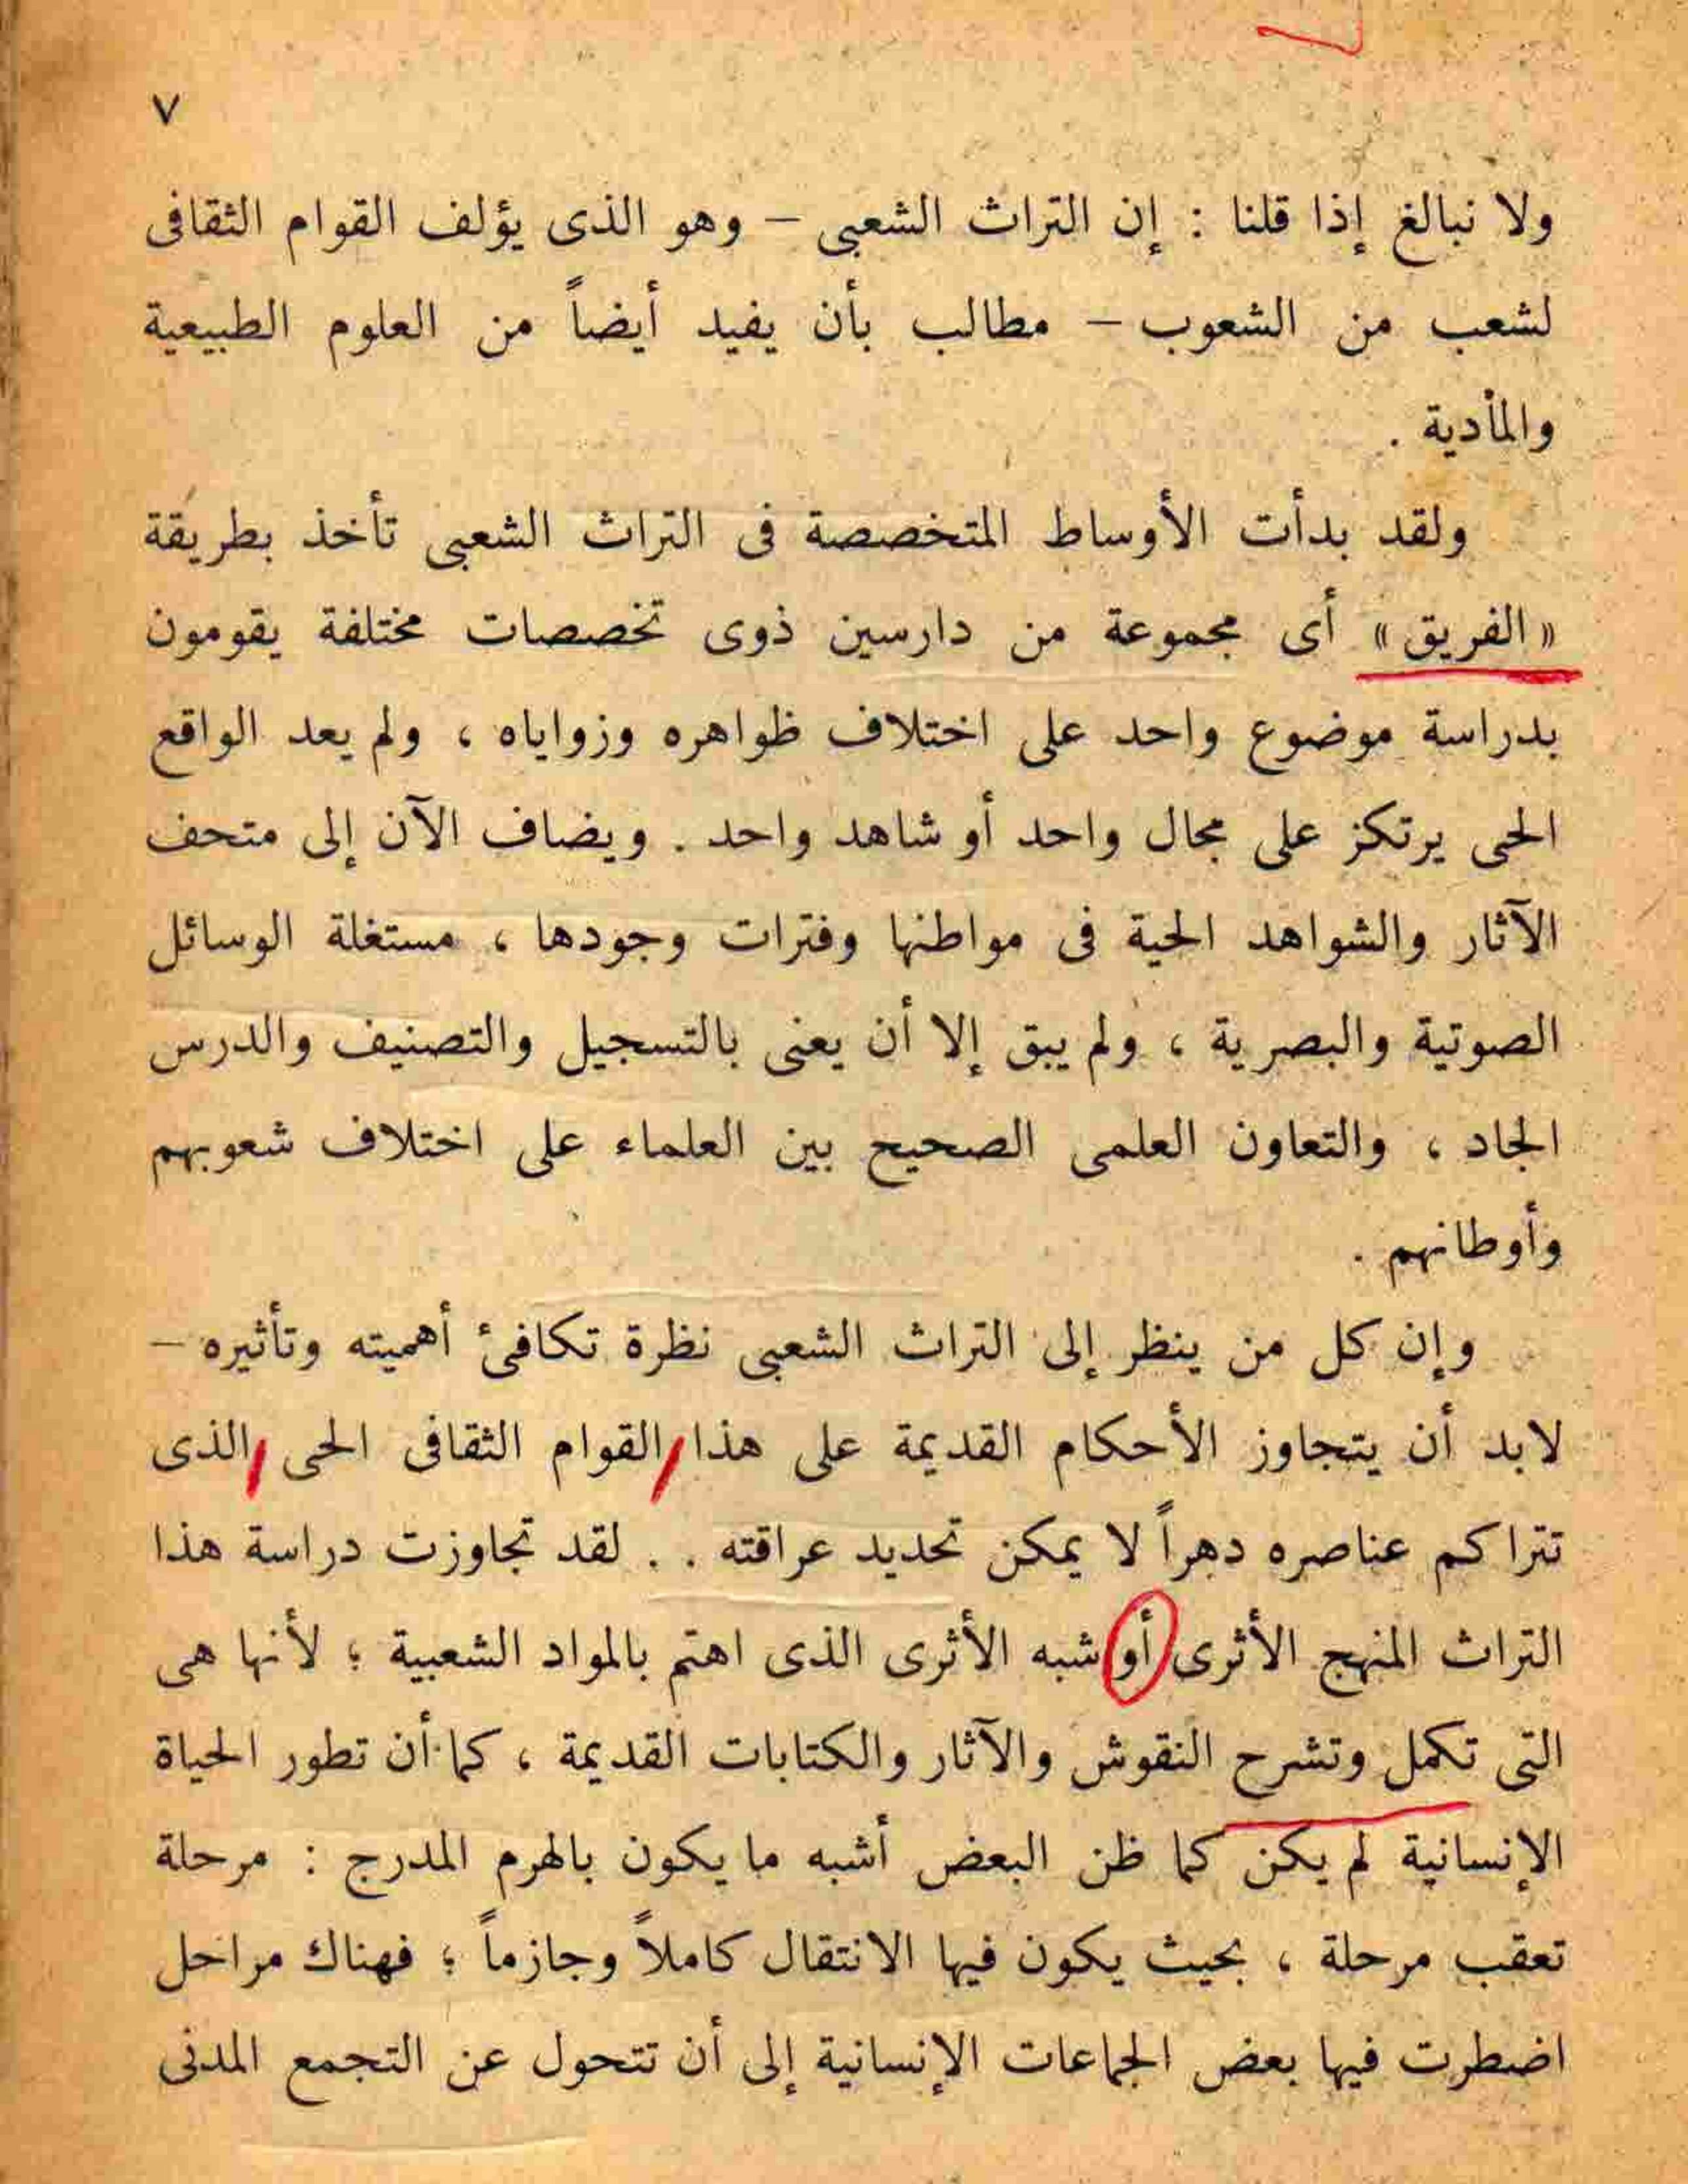 ٧
ولا نبالغ إذا قلنا : إن التراث الشعبى – وهو الذى يؤلف القوام الثقافى
لشعب من الشعوب – مطالب بأن يفيد أيضاً من العلوم الطبيعية
والمادية .
ولقد بدأت الأوساط المتخصصة فى التراث الشعبى تأخذ بطريقة
« الفريق » أى مجموعة من دارسين ذوى تخصصات مختلفة يقومون
بدراسة موضوع واحد على اختلاف ظواهره وزواياه ، ولم يعد الواقع
الحى يرتكز على مجال واحد أو شاهد واحد . ويضاف الآن إلى متحف
الآثار والشواهد الحية فى مواطنها وفترات وجودها ، مستغلة الوسائل
الصوتية والبصرية ، ولم يبق إلا أن يعنى بالتسجيل والتصنيف والدرس
الجاد ، والتعاون العلمى الصحيح بين العلماء على اختلاف شعوبهم
وأوطانهم .
وإن كل من ينظر إلى التراث الشعبى نظرة تكافئ أهميته وتأثيره –
لابد أن يتجاوز الأحكام القديمة على هذا القوام الثقافى الحى الذى
تتراكم عناصره دهراً لا يمكن تحديد عراقته . . لقد تجاوزت دراسة هذا
التراث المنهج الأثرى أو شبه الأثرى الذى اهتم بالمواد الشعبية ؛ لأنها هى
التى تكمل وتشرح النقوش والآثار والكتابات القديمة ، كما أن تطور الحياة
الإنسانية لم يكن كما ظن البعض أشبه ما يكون بالهرم المدرج : مرحلة
تعقب مرحلة ، بحيث يكون فيها الانتقال كاملاً وجازماً ؛ فهناك مراحل
اضطرت فيها بعض الجماعات الإنسانية إلى أن تتحول عن التجمع المدنى